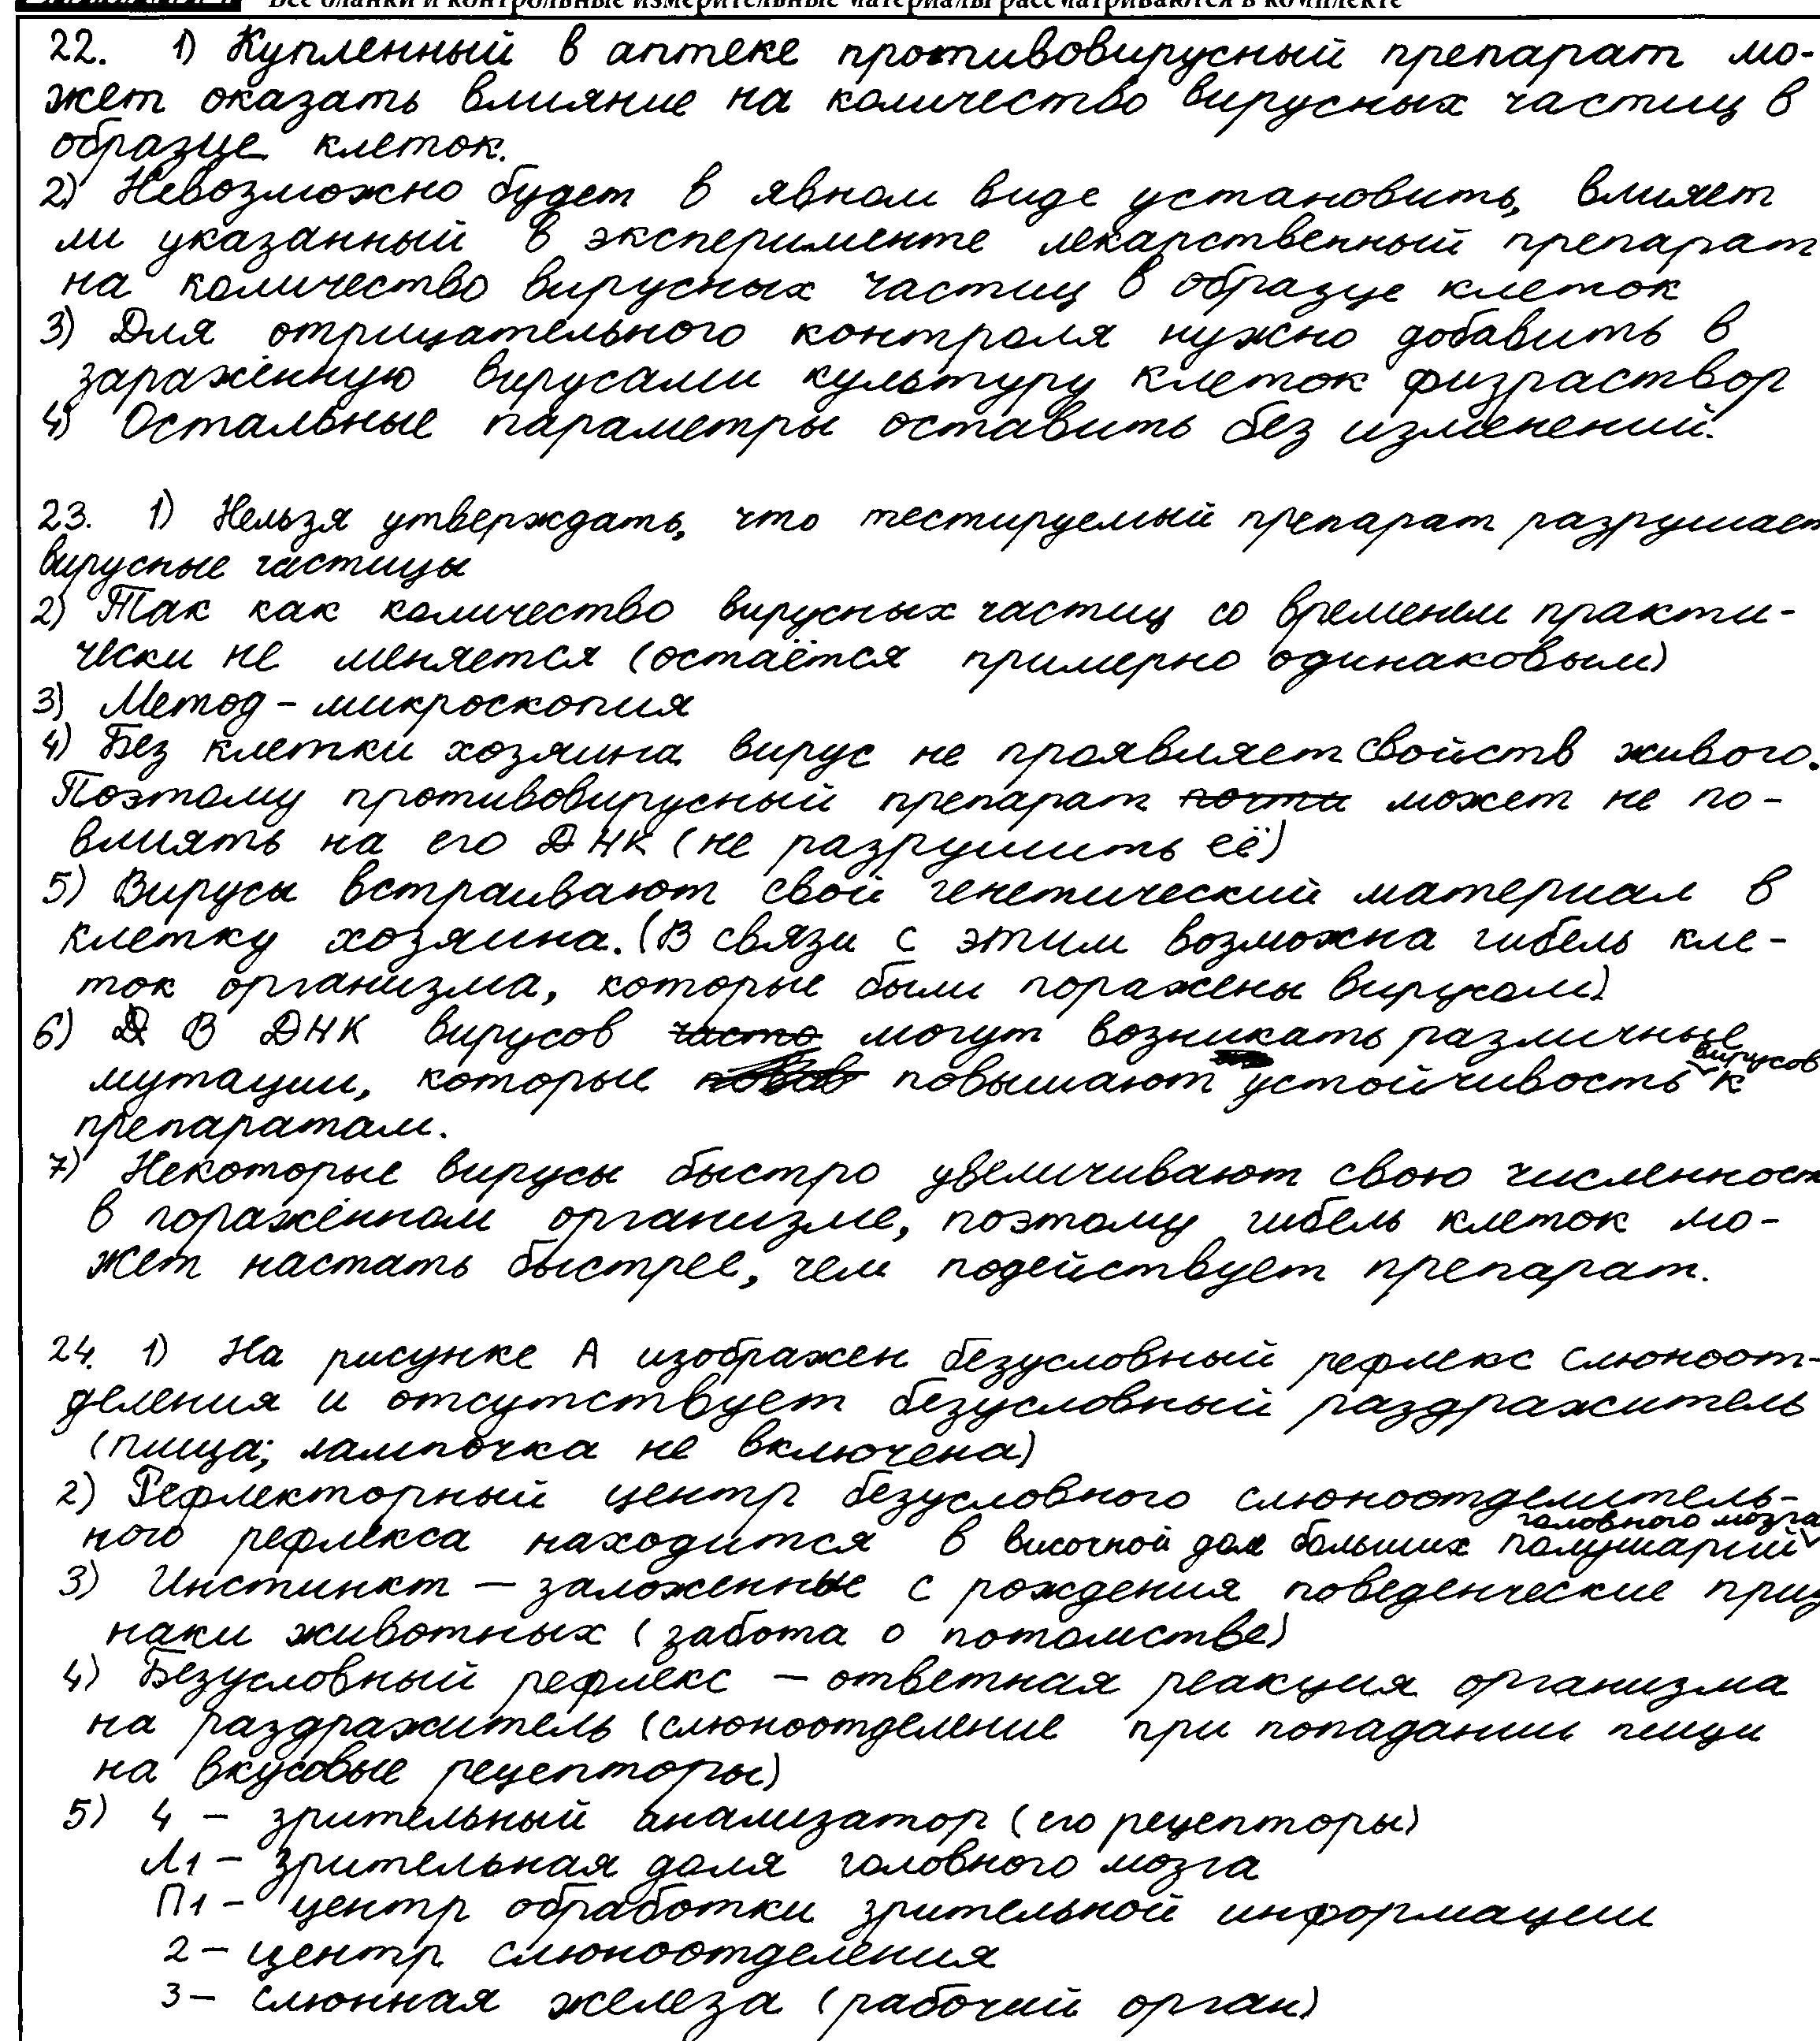 Все бланки и контрольные измерительные материалы рассматриваются в комплекте
22. 1) Купленный в аптеке противовирусный препарат мо-
жет оказать влияние на количество вирусных частиц в
образце клеток.
2) Невозможно будет в явном виде установить, влияет
ли указанный в эксперименте лекарственный препарат
на количество вирусных частиц в образце клеток
3) Для отрицательного контроля нужно добавить в
заражённую вирусами культуру клеток физраствор
4) Остальные параметры оставить без изменений.
23. 1) Нельзя утверждать, что тестируемый препарат разрушает
вирусные частицы
2) Так как количество вирусных частиц со временем практи-
чески не меняется (остаётся примерно одинаковым)
3) Метод - микроскопия
4) Без клетки хозяина вирус не проявляет свойств живого.
Поэтому противовирусный препарат почти может не по-
влиять на его ДНК (не разрушить её)
5) Вирусы встраивают свой генетический материал в
клетку хозяина. (В связи с этим возможна гибель кле-
ток организма, которые были поражены вирусом)
6) Д В ДНК вирусов часто могут возникать различные
мутации, которые повышают устойчивость вирусов к
препаратам.
7) Некоторые вирусы быстро увеличивают свою численност
в поражённом организме, поэтому гибель клеток мо-
жет настать быстрее, чем подействует препарат.
24. 1) На рисунке А изображен безусловный рефлекс слюноот-
деления и отсутствует безусловный раздражитель
(пища; лампочка не включена)
2) Рефлекторный центр безусловного слюноотделитель-
ного рефлекса находится в височной доле больших полушарий головного мозга
3) Инстинкт — заложенные с рождения поведенческие приз
наки животных (забота о потомстве)
4) Безусловный рефлекс — ответная реакция организма
на раздражитель (слюноотделение при попадании пищи
на вкусовые рецепторы)
5) 4 - зрительный анализатор (его рецепторы)
Л1 - зрительная доля головного мозга
П1 - центр обработки зрительной информации
2 - центр слюноотделения
3 - слюнная железа (рабочий орган)